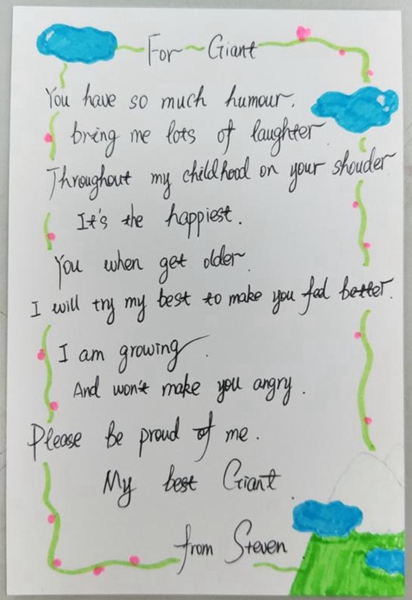 For ~ Giant
You have so much humour.
bring me lots of laughter
Throughout my childhood on your shouder
It's the happiest.
You when get older.
I will try my best to make you feel better.
I am growing.
And won't make you angry.
Please be proud of me.
My best Giant.
from Steven